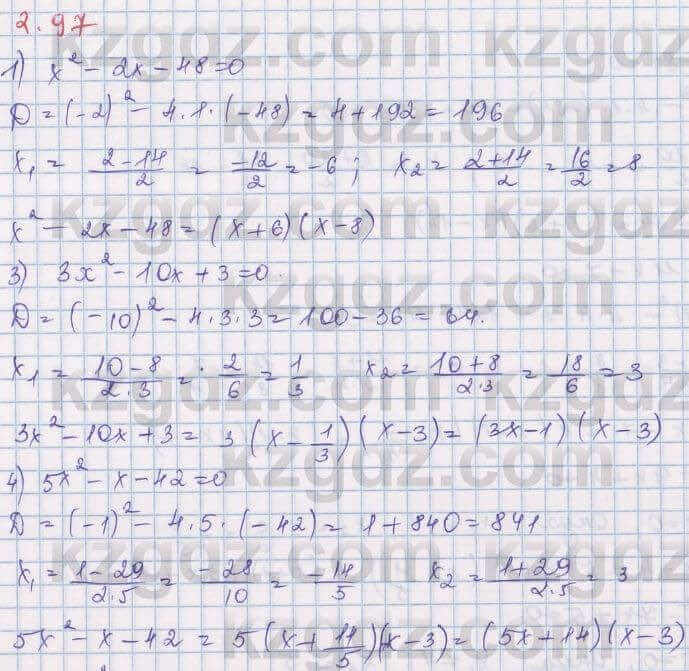 2.97
1) x² - 2x - 48 = 0
D = (-2)² - 4·1·(-48) = 4 + 192 = 196
x₁ = (2-14)/2 = -12/2 = -6; x₂ = (2+14)/2 = 16/2 = 8
x² - 2x - 48 = (x+6)(x-8)
3) 3x² - 10x + 3 = 0.
D = (-10)² - 4·3·3 = 100 - 36 = 64.
x₁ = (10-8)/(2·3) = 2/6 = 1/3 x₂ = (10+8)/(2·3) = 18/6 = 3
3x² - 10x + 3 = 3(x - 1/3)(x-3) = (3x-1)(x-3)
4) 5x² - x - 42 = 0
D = (-1)² - 4·5·(-42) = 1 + 840 = 841
x₁ = (1-29)/(2·5) = -28/10 = -14/5 x₂ = (1+29)/(2·5) = 3
5x² - x - 42 = 5(x + 14/5)(x-3) = (5x+14)(x-3)
kzgdz.com